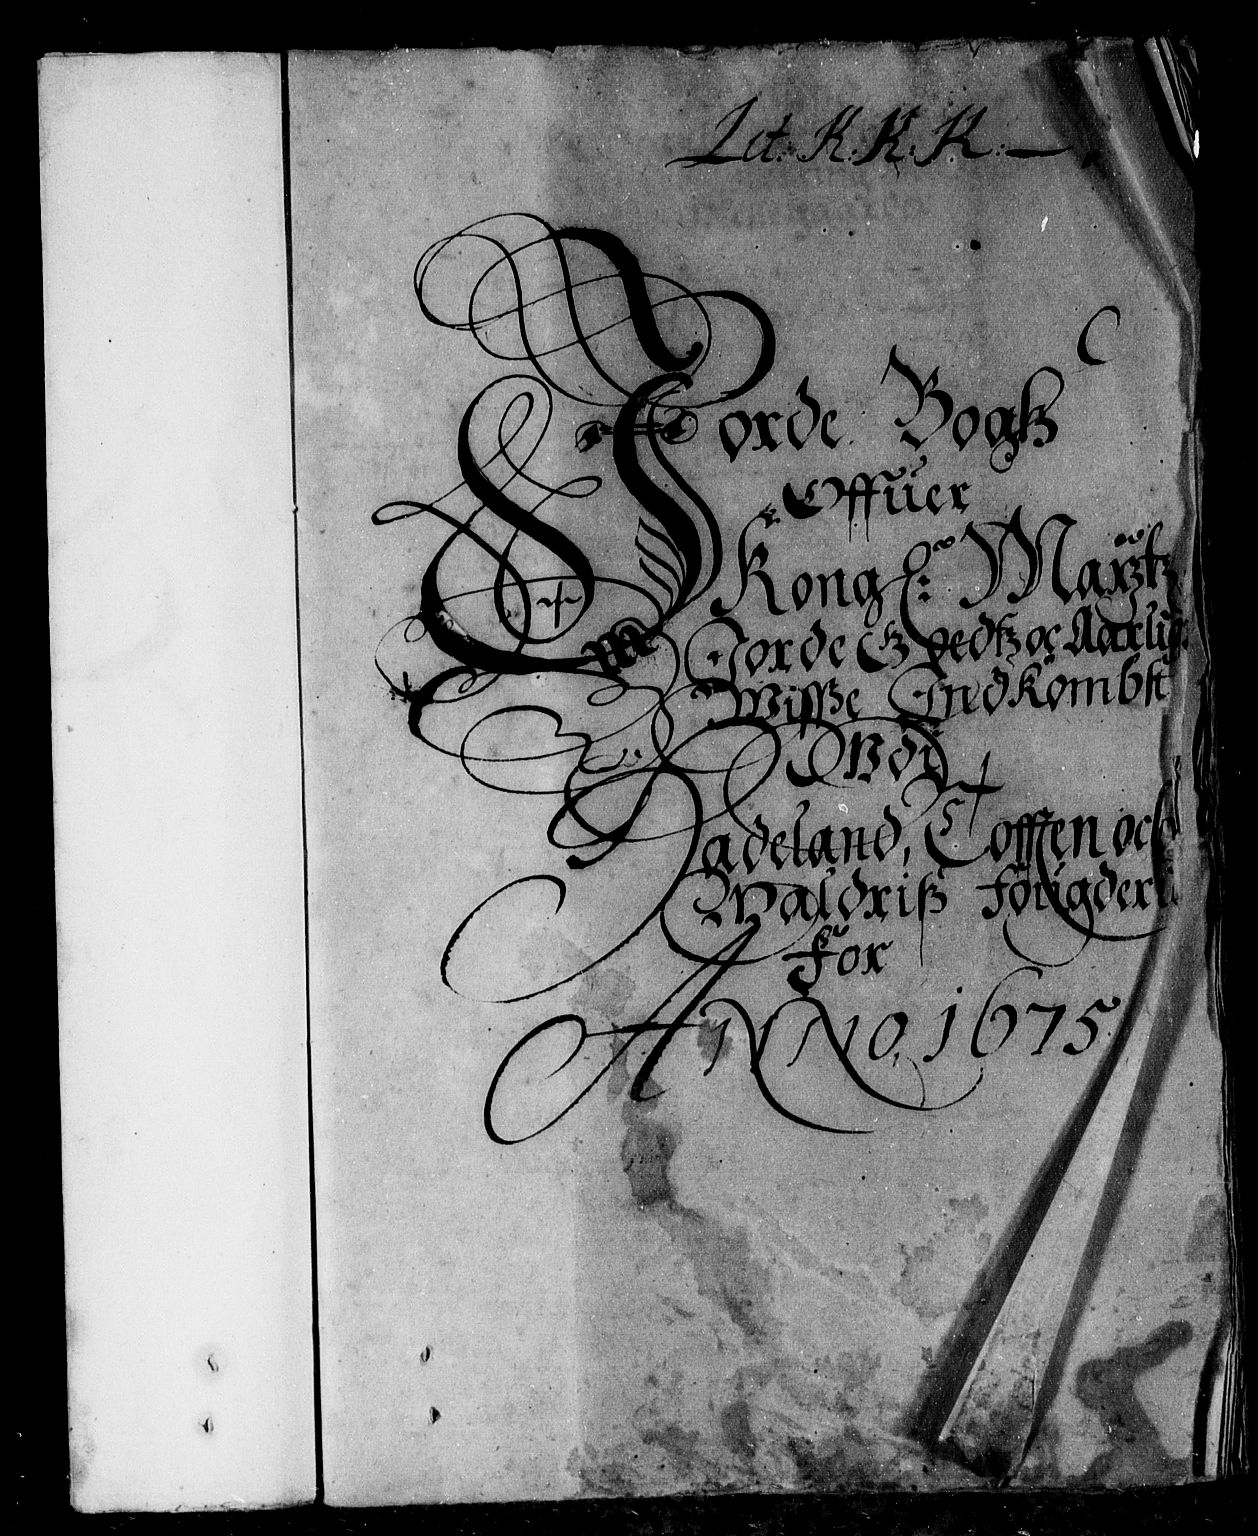 Lit. K. K. K.
C
Jorde Bogsz
Offuer
Kong: Maytz
Jorde Godtz oc Aarlig
Wisse Indkombst
Vdj
Hadeland, Totten och
Waldriss fougderi
for
ANNO, 1675